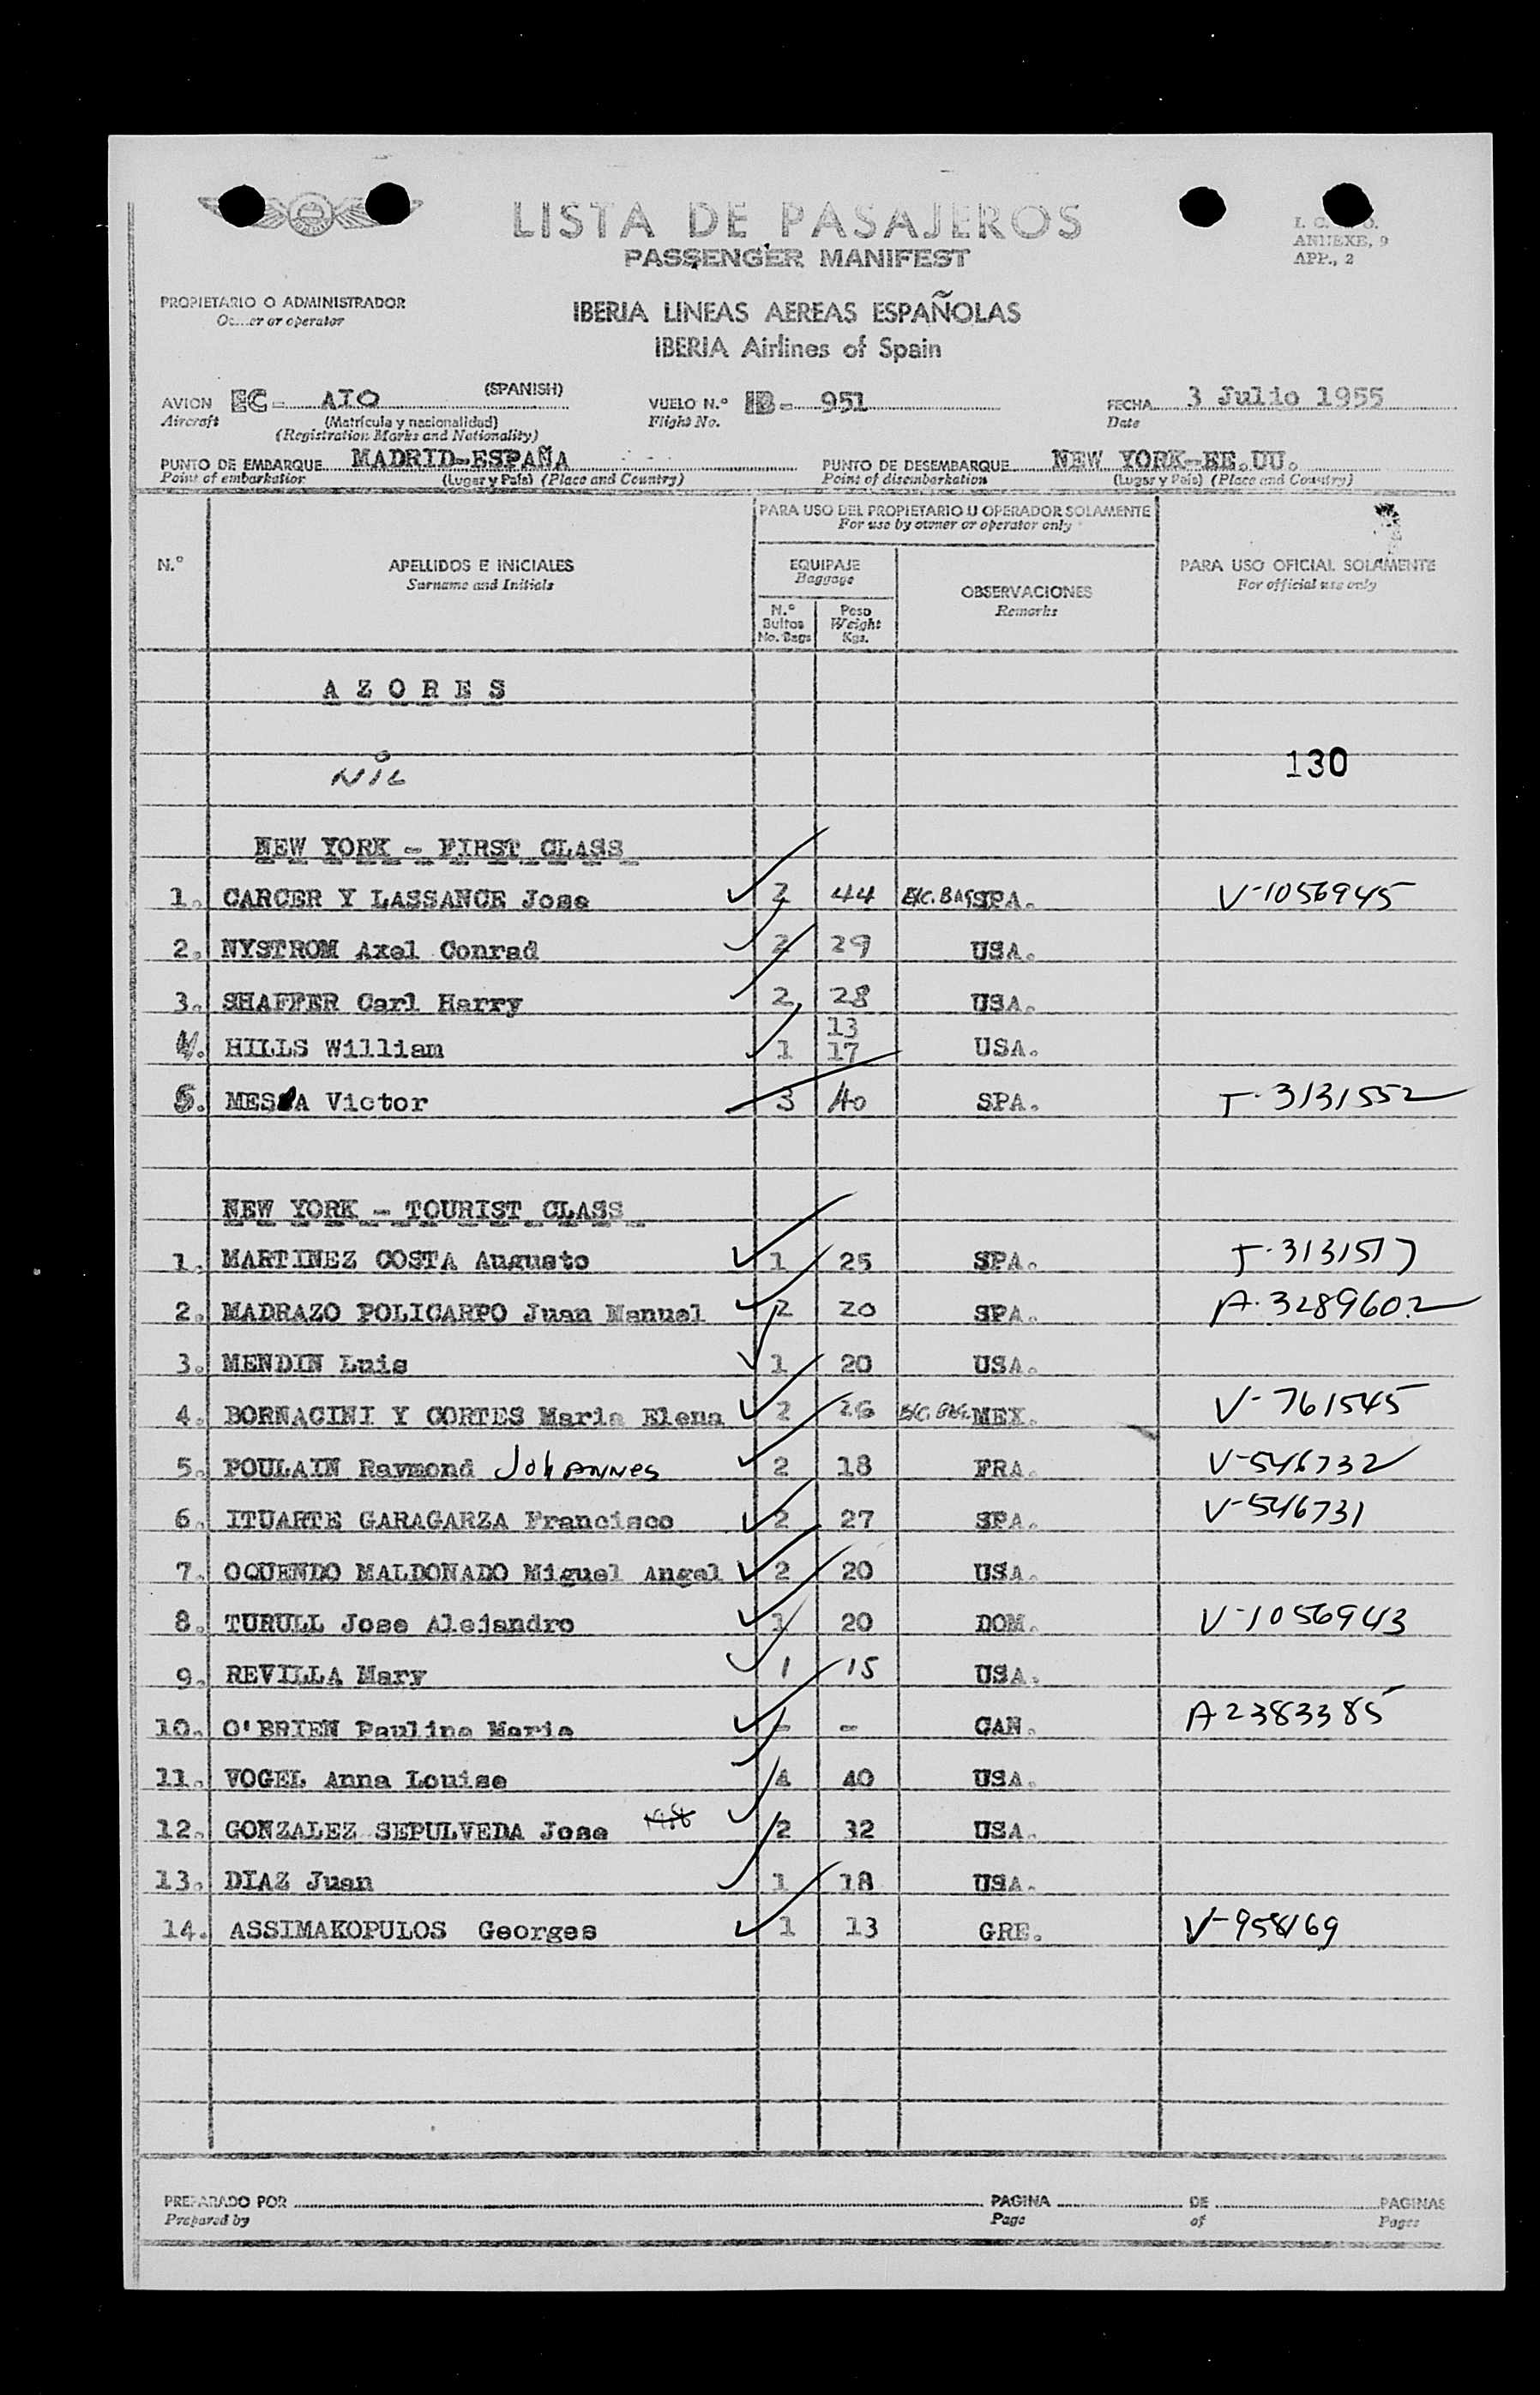 LISTA DE PASAJEROS
PASSENGER MANIFEST
ANNEXE, 9
APP., 2
PROPIETARIO O ADMINISTRADOR
or operator
IBERIA LINEAS AEREAS ESPAÑOLAS
IBERIA Airlines of Spain
AVION EC- (SPANISH) VUELO N.º IB- 951 FECHA 3 Julio 1955
Aircraft (Matrícula y nacionalidad) Flight No. Date
(Registration Marks and Nationality)
PUNTO DE EMBARQUE MADRID-ESPAÑA PUNTO DE DESEMBARQUE NEW YORK-EE.UU.
Point of embarkation (Lugar y País) (Place and Country) Point of disembarkation (Lugar y País) (Place and Country)
PARA USO DEL PROPIETARIO U OPERADOR SOLAMENTE
For use by owner or operator only
N.º APELLIDOS E INICIALES EQUIPAJE OBSERVACIONES PARA USO OFICIAL SOLAMENTE
Surname and Initials Baggage Remarks For official use only
N.º Bultos Peso
No. Bags Weight Kgs.
AZORES
NIL 130
NEW YORK - FIRST CLASS
1. CARCER Y LASSANCE Jose 2 44 SPA. V-1056945
2. NYSTROM Axel Conrad 2 29 USA.
3. SHAFFER Carl Harry 2 28 USA.
13
4. HILLS William 1 17 USA.
5. MESA Victor 3 40 SPA. T-3131552
NEW YORK - TOURIST CLASS
1. MARTINEZ COSTA Augusto 1 25 SPA. T-3131517
2. MADRAZO POLICARPO Juan Manuel 2 20 SPA. A-3289602
3. MENDIN Luis 1 20 USA.
4. BORNACINI Y CORTES Maria Elena 2 26 MEX. V-761545
5. POULAIN Raymond JohANNes 2 18 FRA. V-546732
6. ITUARTE GARAGARZA Francisco 2 27 SPA. V-546731
7. OQUENDO MALDONADO Miguel Angel 2 20 USA.
8. TURULL Jose Alejandro 1 20 DOM. V-1056943
9. REVILLA Mary 1 15 USA.
10. O'BRIEN Pauline Marie - - CAN. A2383385
11. VOGEL Anna Louise 4 40 USA.
12. GONZALEZ SEPULVEDA Jose 2 32 USA.
13. DIAZ Juan 1 18 USA.
14. ASSIMAKOPULOS Georges 1 13 GRE. V-958169
PREPARADO POR PAGINA DE PAGINAS
Prepared by Page of Pages